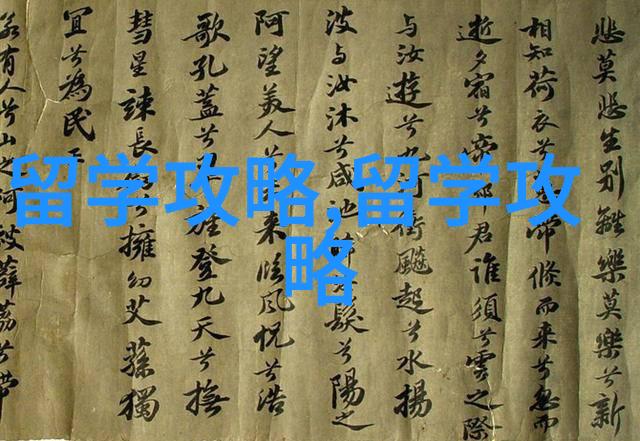 悲莫悲生別離樂莫樂兮新
相知荷衣兮帶倐而來兮忽而
逝夕宿兮帝郊君誰須兮雲之際
与汝遊兮九河衝飈起兮水揚
波与汝沐兮咸池髮兮陽之
阿望美人兮來臨風怳兮浩
歌孔蓋兮旌登九天兮撫
彗星竦長兮擁幼艾蓀獨
宜兮為民
若有人兮山之阿被薜荔兮帶
留学攻略,留学攻
略